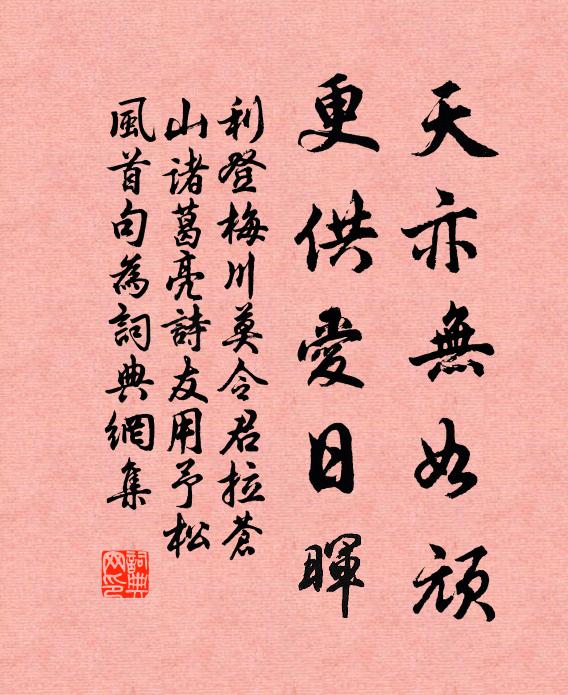 天亦無如頑
更供愛日暉
利登梅川莫令君拉蒼
山諸葛亮詩友用予松
風首句為詞典網集
詞典網印